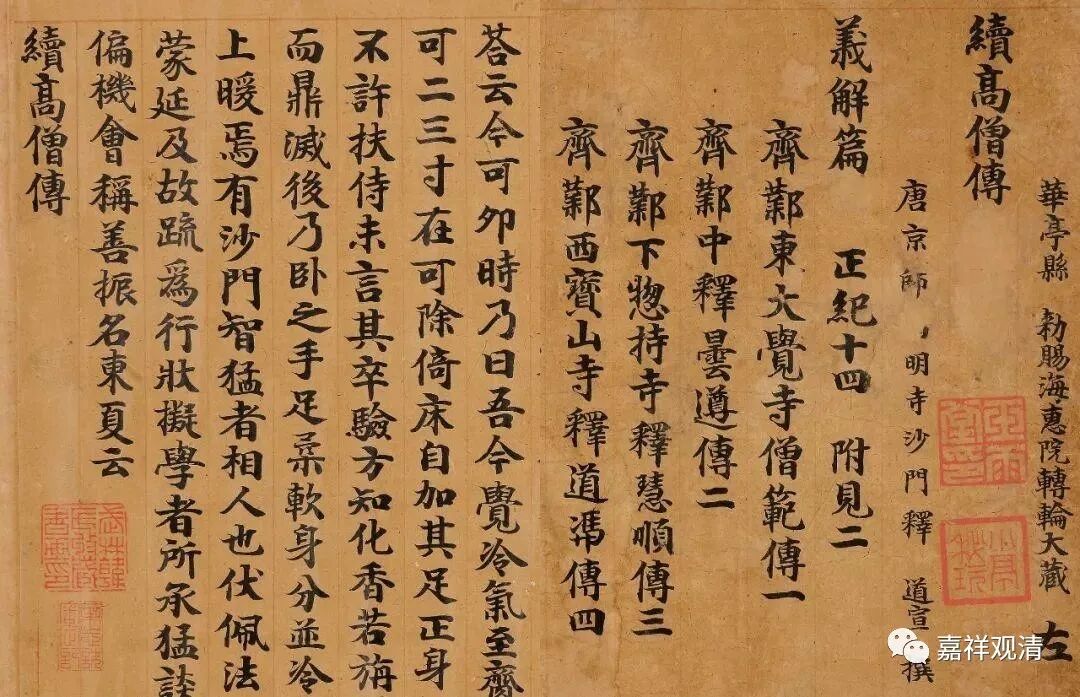 華亭縣 勑賜海惠院轉輪大藏 左
續高僧傳
唐京師 明寺沙門釋 道宣 撰
義解篇 正紀十四 附見二
齊鄴東大覺寺僧範傳一
齊鄴中釋曇遵傳二
齊鄴下揔持寺釋慧順傳三
齊鄴西寶山寺釋道馮傳四
荅云今可卯時乃曰吾今覺冷氣至齊
可二三寸在可除倚床自加其足正身
不許扶侍未言其卒驗方知化香若旃
而鼎滅後乃卧之手足柔軟身分並冷
上暖焉有沙門智猛者相人也伏佩法
蒙延及故䟽爲行狀擬學者所承猛談
偏機會稱善振名東夏云
續高僧傳
嘉祥观清